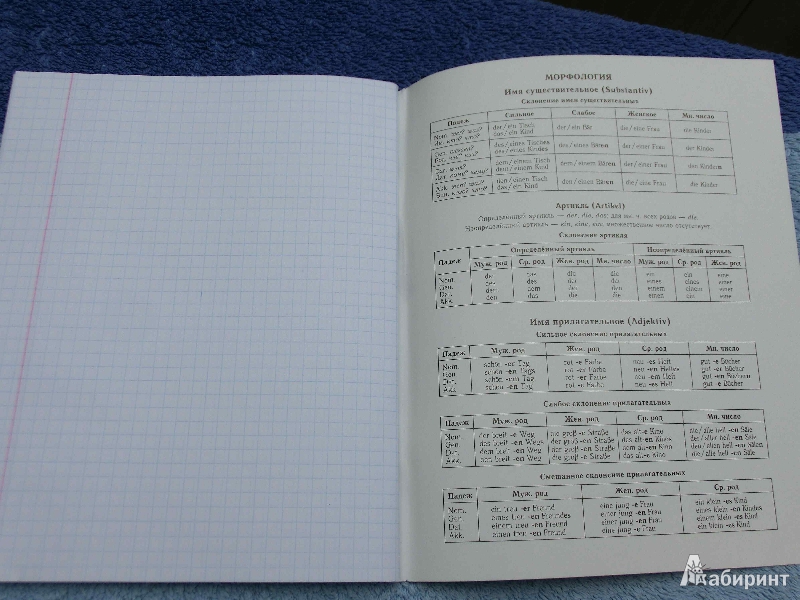 МОРФОЛОГИЯ
Имя существительное (Substantiv)
Склонение имен существительных
Падеж Сильное Слабое Женское Мн. число
Nom. wer? was? der/ein Tisch der/ein Bär die/eine Frau die Kinder
das/ein Kind
des/eines Tisches des/eines Bären der/einer Frau der Kinder
des/eines Kindes
dem/einem Tisch dem/einem Bären der/einer Frau den Kindern
dem/einem Kind
den/einen Tisch den/einen Bären die/eine Frau die Kinder
das/ein Kind
Артикль (Artikel)
Определённый артикль — der, die, das; для мн. ч. всех родов — die.
Неопределённый артикль — ein, eine, ein, множественное число отсутствует.
Склонение артикля
Падеж Определённый артикль Неопределённый артикль
Муж. род Ср. род Жен. род Мн. число Муж. род Ср. род Жен. род
Nom. das die die ein ein eine
Gen. des des der der eines eines einer
Dat. dem der einem einem einer
Akk. den das die die einen ein eine
Имя прилагательное (Adjektiv)
Сильное склонение прилагательных
Падеж Муж. род Жен. род Ср. род Мн. число
Nom. schön -er Tag rot -e Farbe neu -es Heft gut -e Bücher
Gen. schön -en Tags rot -er Farbe neu -en Heftes gut -er Bücher
Dat. schön -em Tag rot -er Farbe neu -em Heft gut -en Büchern
Akk. schön -en Tag rot -e Farbe neu -es Heft gut -e Bücher
Слабое склонение прилагательных
Падеж Муж. род Жен. род Ср. род Мн. число
Nom. der breit -e Weg die groß -e Straße das alt -e Kino die/alle hell -en Säle
Gen. des breit -en Wegs der groß -en Straße des alt -en Kinos der/aller hell -en Säle
Dat. dem breit -en Weg der groß -en Straße dem alt -en Kino den/allen hell -en Sälen
Akk. den breit -en Weg die groß -e Straße das alt -e Kino die/alle hell -en Säle
Смешанное склонение прилагательных
Падеж Муж. род Жен. род Ср. род
Nom. ein treu -er Freund eine jung -e Frau ein klein -es Kind
Gen. eines treu -en Freundes einer jung -en Frau eines klein -en Kindes
Dat. einem treu -en Freund einer jung -en Frau einem klein -en Kind
Akk. einen treu -en Freund eine jung -e Frau ein klein -es Kind
Лабиринт